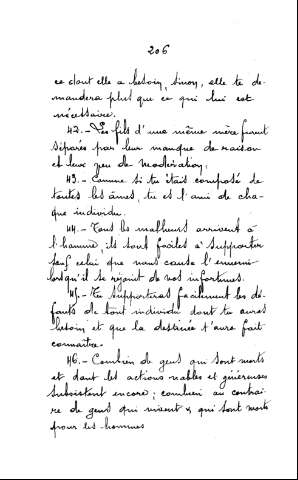 206
ce dont elle a besoin, sinon, elle te de-
mandera plus que ce qui lui est
nécessaire.
42.- Les fils d'une même mère furent
séparés par leur manque de raison
et leur peu de modération,
43.- Comme si tu étais composé de
toutes les âmes, tu es l'ami de cha-
que individu.
44.- Tous les malheurs arrivent à
l'homme, ils sont faciles à supporter
sauf celui que nous cause l'ennemi
lorsqu'il se réjouit de nos infortunes.
45.- Tu supporteras facilement les dé-
fauts de tout individu dont tu auras
besoin et que la destinée t'aura fait
connaître.
46.- Combien de gens qui sont morts
et dont les actions nobles et généreuses
subsistent encore; combien au contrai-
re de gens qui vivent & qui sont morts
pour les hommes